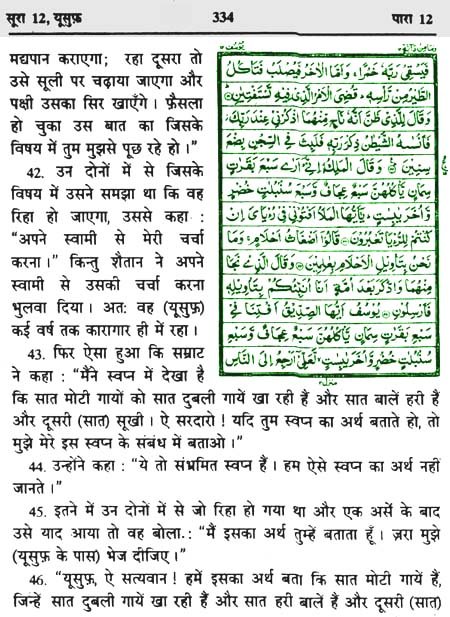 सूरा 12, यूसुफ़ 334 पारा 12
मद्यपान कराएगा; रहा दूसरा तो
उसे सूली पर चढ़ाया जाएगा और
पक्षी उसका सिर खाएँगे। फ़ैसला
हो चुका उस बात का जिसके
विषय में तुम मुझसे पूछ रहे हो।"
42. उन दोनों में से जिसके
विषय में उसने समझा था कि वह
रिहा हो जाएगा, उससे कहा :
"अपने स्वामी से मेरी चर्चा
करना।" किन्तु शैतान ने अपने
स्वामी से उसकी चर्चा करना
भुलवा दिया। अत: वह (यूसुफ़)
कई वर्ष तक कारागार ही में रहा।
43. फिर ऐसा हुआ कि सम्राट
ने कहा : "मैंने स्वप्न में देखा है
يوسف ١٢
فَيَسْقِىْ رَبَّهٗ خَمْرًا ۚ وَاَمَّا الْاٰخَرُ فَيُصْلَبُ فَتَاْكُلُ
الطَّيْرُ مِنْ رَّاْسِهٖ ؕ قُضِىَ الْاَمْرُ الَّذِىْ فِيْهِ تَسْتَفْتِيٰنِ
وَقَالَ لِلَّذِىْ ظَنَّ اَنَّهٗ نَاجٍ مِّنْهُمَا اذْكُرْنِىْ عِنْدَ رَبِّكَ
فَاَنْسٰهُ الشَّيْطٰنُ ذِكْرَ رَبِّهٖ فَلَبِثَ فِى السِّجْنِ بِضْعَ
سِنِيْنَ وَقَالَ الْمَلِكُ اِنِّىْۤ اَرٰى سَبْعَ بَقَرٰتٍ
سِمَانٍ يَّاْكُلُهُنَّ سَبْعٌ عِجَافٌ وَّسَبْعَ سُنْۢبُلٰتٍ خُضْرٍ
وَّاُخَرَ يٰبِسٰتٍ يٰۤاَيُّهَا الْمَلَاُ اَفْتُوْنِىْ فِىْ رُءْيَاىَ اِنْ
كُنْتُمْ لِلرُّءْيَا تَعْبُرُوْنَ قَالُوْۤا اَضْغَاثُ اَحْلَامٍ وَمَا
نَحْنُ بِتَاْوِيْلِ الْاَحْلَامِ بِعٰلِمِيْنَ وَقَالَ الَّذِىْ نَجَا
مِنْهُمَا وَادَّكَرَ بَعْدَ اُمَّةٍ اَنَا اُنَبِّئُكُمْ بِتَاْوِيْلِهٖ
فَاَرْسِلُوْنِ يُوْسُفُ اَيُّهَا الصِّدِّيْقُ اَفْتِنَا فِىْ
سَبْعِ بَقَرٰتٍ سِمَانٍ يَّاْكُلُهُنَّ سَبْعٌ عِجَافٌ وَّسَبْعِ
سُنْۢبُلٰتٍ خُضْرٍ وَّاُخَرَ يٰبِسٰتٍ لَّعَلِّىْۤ اَرْجِعُ اِلَى النَّاسِ
कि सात मोटी गायों को सात दुबली गायें खा रही हैं और सात बालें हरी हैं
और दूसरी (सात) सूखी। ऐ सरदारो! यदि तुम स्वप्न का अर्थ बताते हो, तो
मुझे मेरे इस स्वप्न के संबंध में बताओ।"
44. उन्होंने कहा : "ये तो संभ्रमित स्वप्न हैं। हम ऐसे स्वप्न का अर्थ नहीं
जानते।"
45. इतने में उन दोनों में से जो रिहा हो गया था और एक अर्से के बाद
उसे याद आया तो वह बोला.: "मैं इसका अर्थ तुम्हें बताता हूँ। ज़रा मुझे
(यूसुफ़ के पास) भेज दीजिए।"
46. "यूसुफ़, ऐ सत्यवान! हमें इसका अर्थ बता कि सात मोटी गायें हैं,
जिन्हें सात दुबली गायें खा रही हैं और सात हरी बालें हैं और दूसरी (सात)